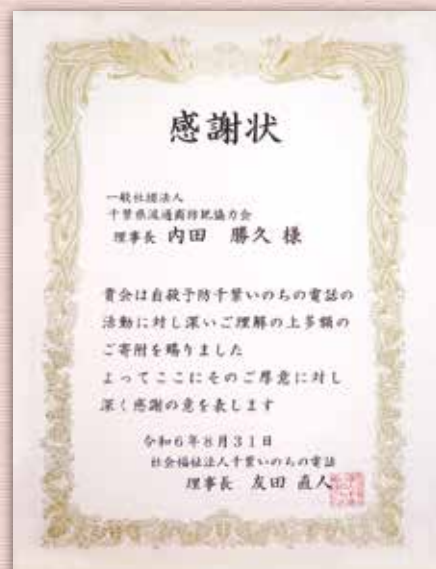 感謝状
一般社団法人
千葉県流通商防犯協力会
理事長 内田 勝久 様
貴会は自殺予防千葉いのちの電話の
活動に対し深いご理解の上多額の
ご寄附を賜りました
よってここにそのご厚意に対し
深く感謝の意を表します
令和6年8月31日
社会福祉法人千葉いのちの電話
理事長 友田 直人